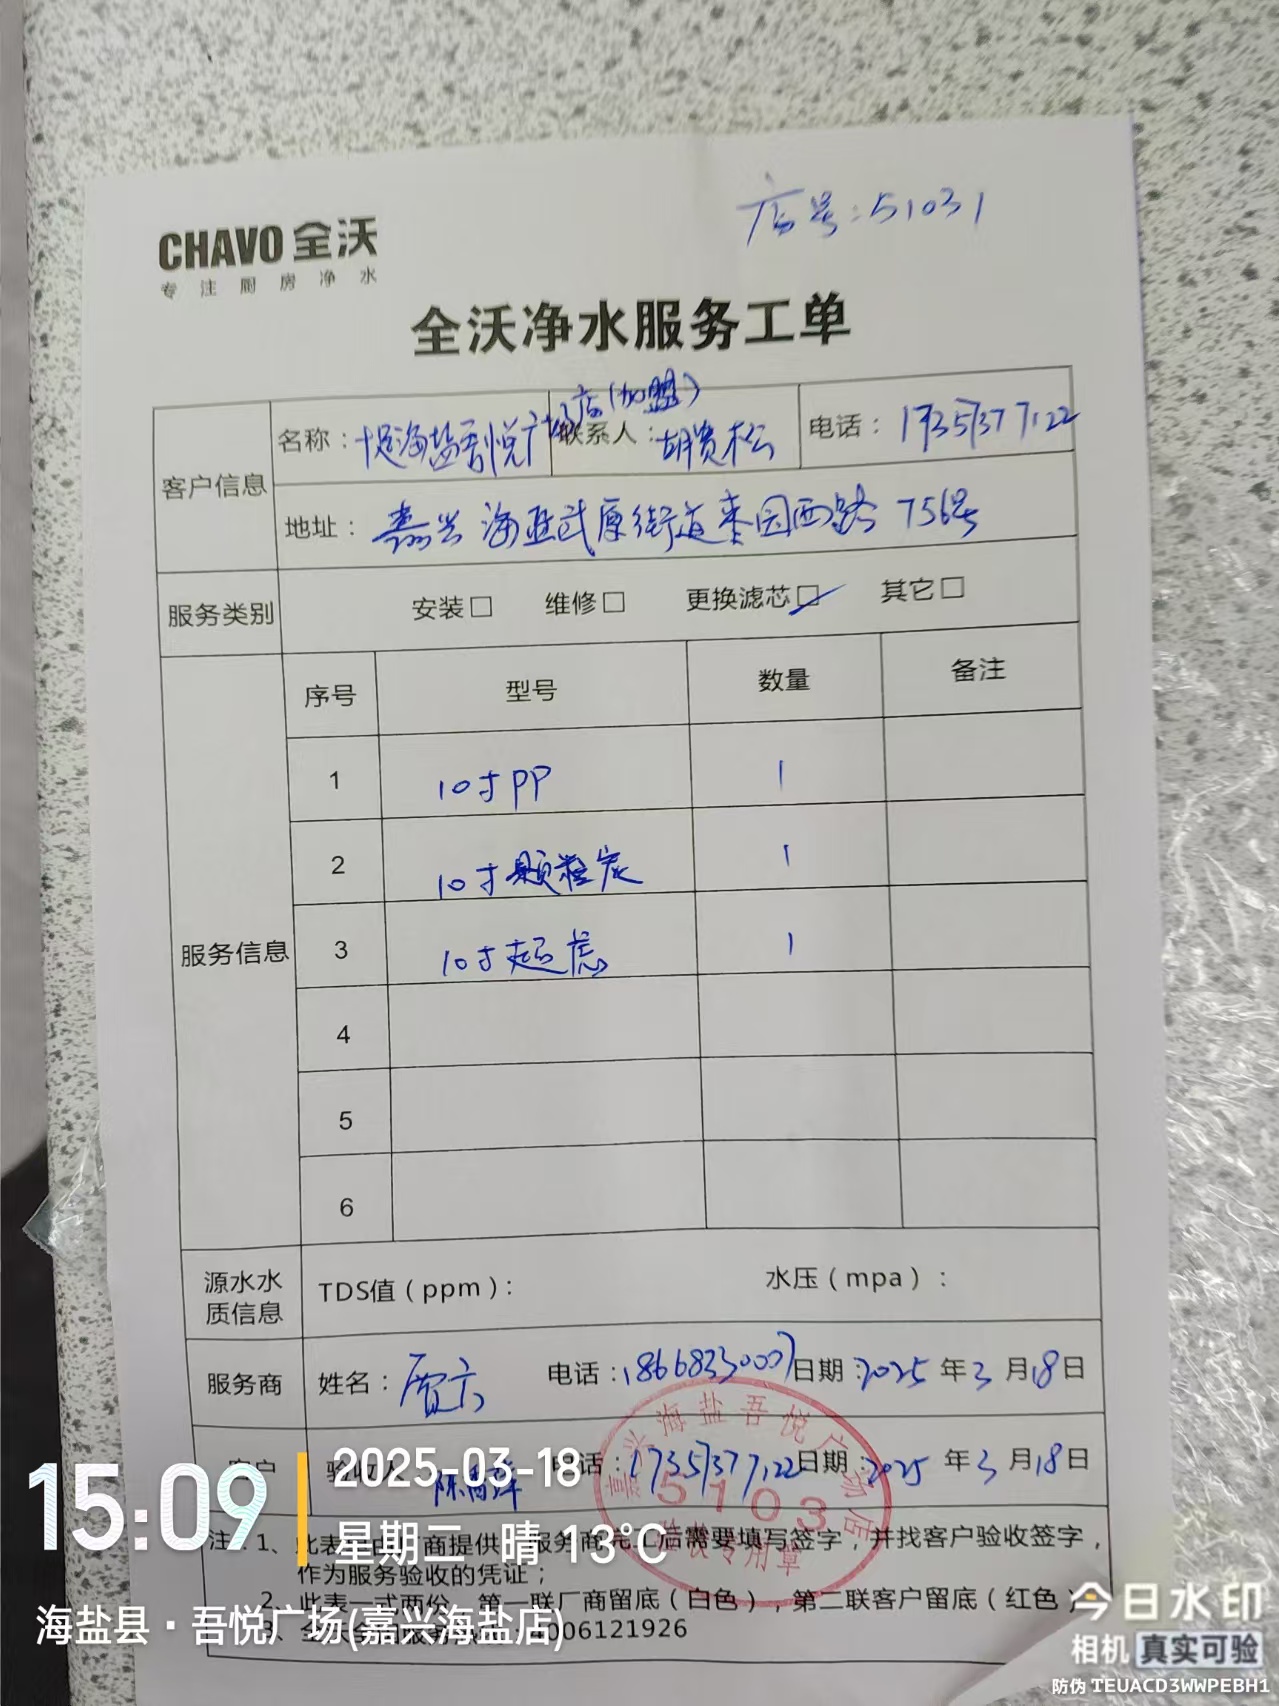 店号:51031
CHAVO 全沃
专注厨房净水
全沃净水服务工单
客户信息 名称: 海盐吾悦广场店(加盟) 联系人: 胡贤松 电话: 17357377122
地址: 嘉兴海盐武原街道枣园西路756号
服务类别 安装□ 维修□ 更换滤芯☑ 其它□
服务信息 序号 型号 数量 备注
1 10寸PP 1
2 10寸颗粒炭 1
3 10寸超虑 1
4
5
6
源水水质信息 TDS值(ppm): 水压(mpa):
服务商 姓名: 贾六 电话:18668233007 日期:2025年3月18日
客户 验收人 陈 电话:17357377122 日期:2025年3月18日
嘉兴海盐吾悦广场店
51031
验收专用章
注:1、此表 商提供 服务商完工后需要填写签字,并找客户验收签字,
作为服务验收的凭证;
2、此表一式两份,第一联厂商留底(白色),第二联客户留底(红色)
3、全沃全国服务 4006121926
15:09
2025-03-18
星期二 晴 13℃
海盐县·吾悦广场(嘉兴海盐店)
今日水印
相机 真实可验
防伪 TEUACD3WWPEBH1